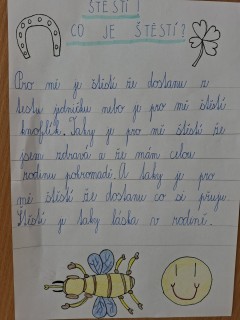 ŠTĚSTÍ!
CO JE ŠTĚSTÍ?
Pro mě je štěstí že dostanu z
testu jedničku nebo je pro mě štěstí
knoflík. Taky je pro mě štěstí že
jsem zdravá a že mám celou
rodinu pohromadě. A taky je pro
mě štěstí že dostanu co si přuju.
Štěstí je taky láska v rodině.